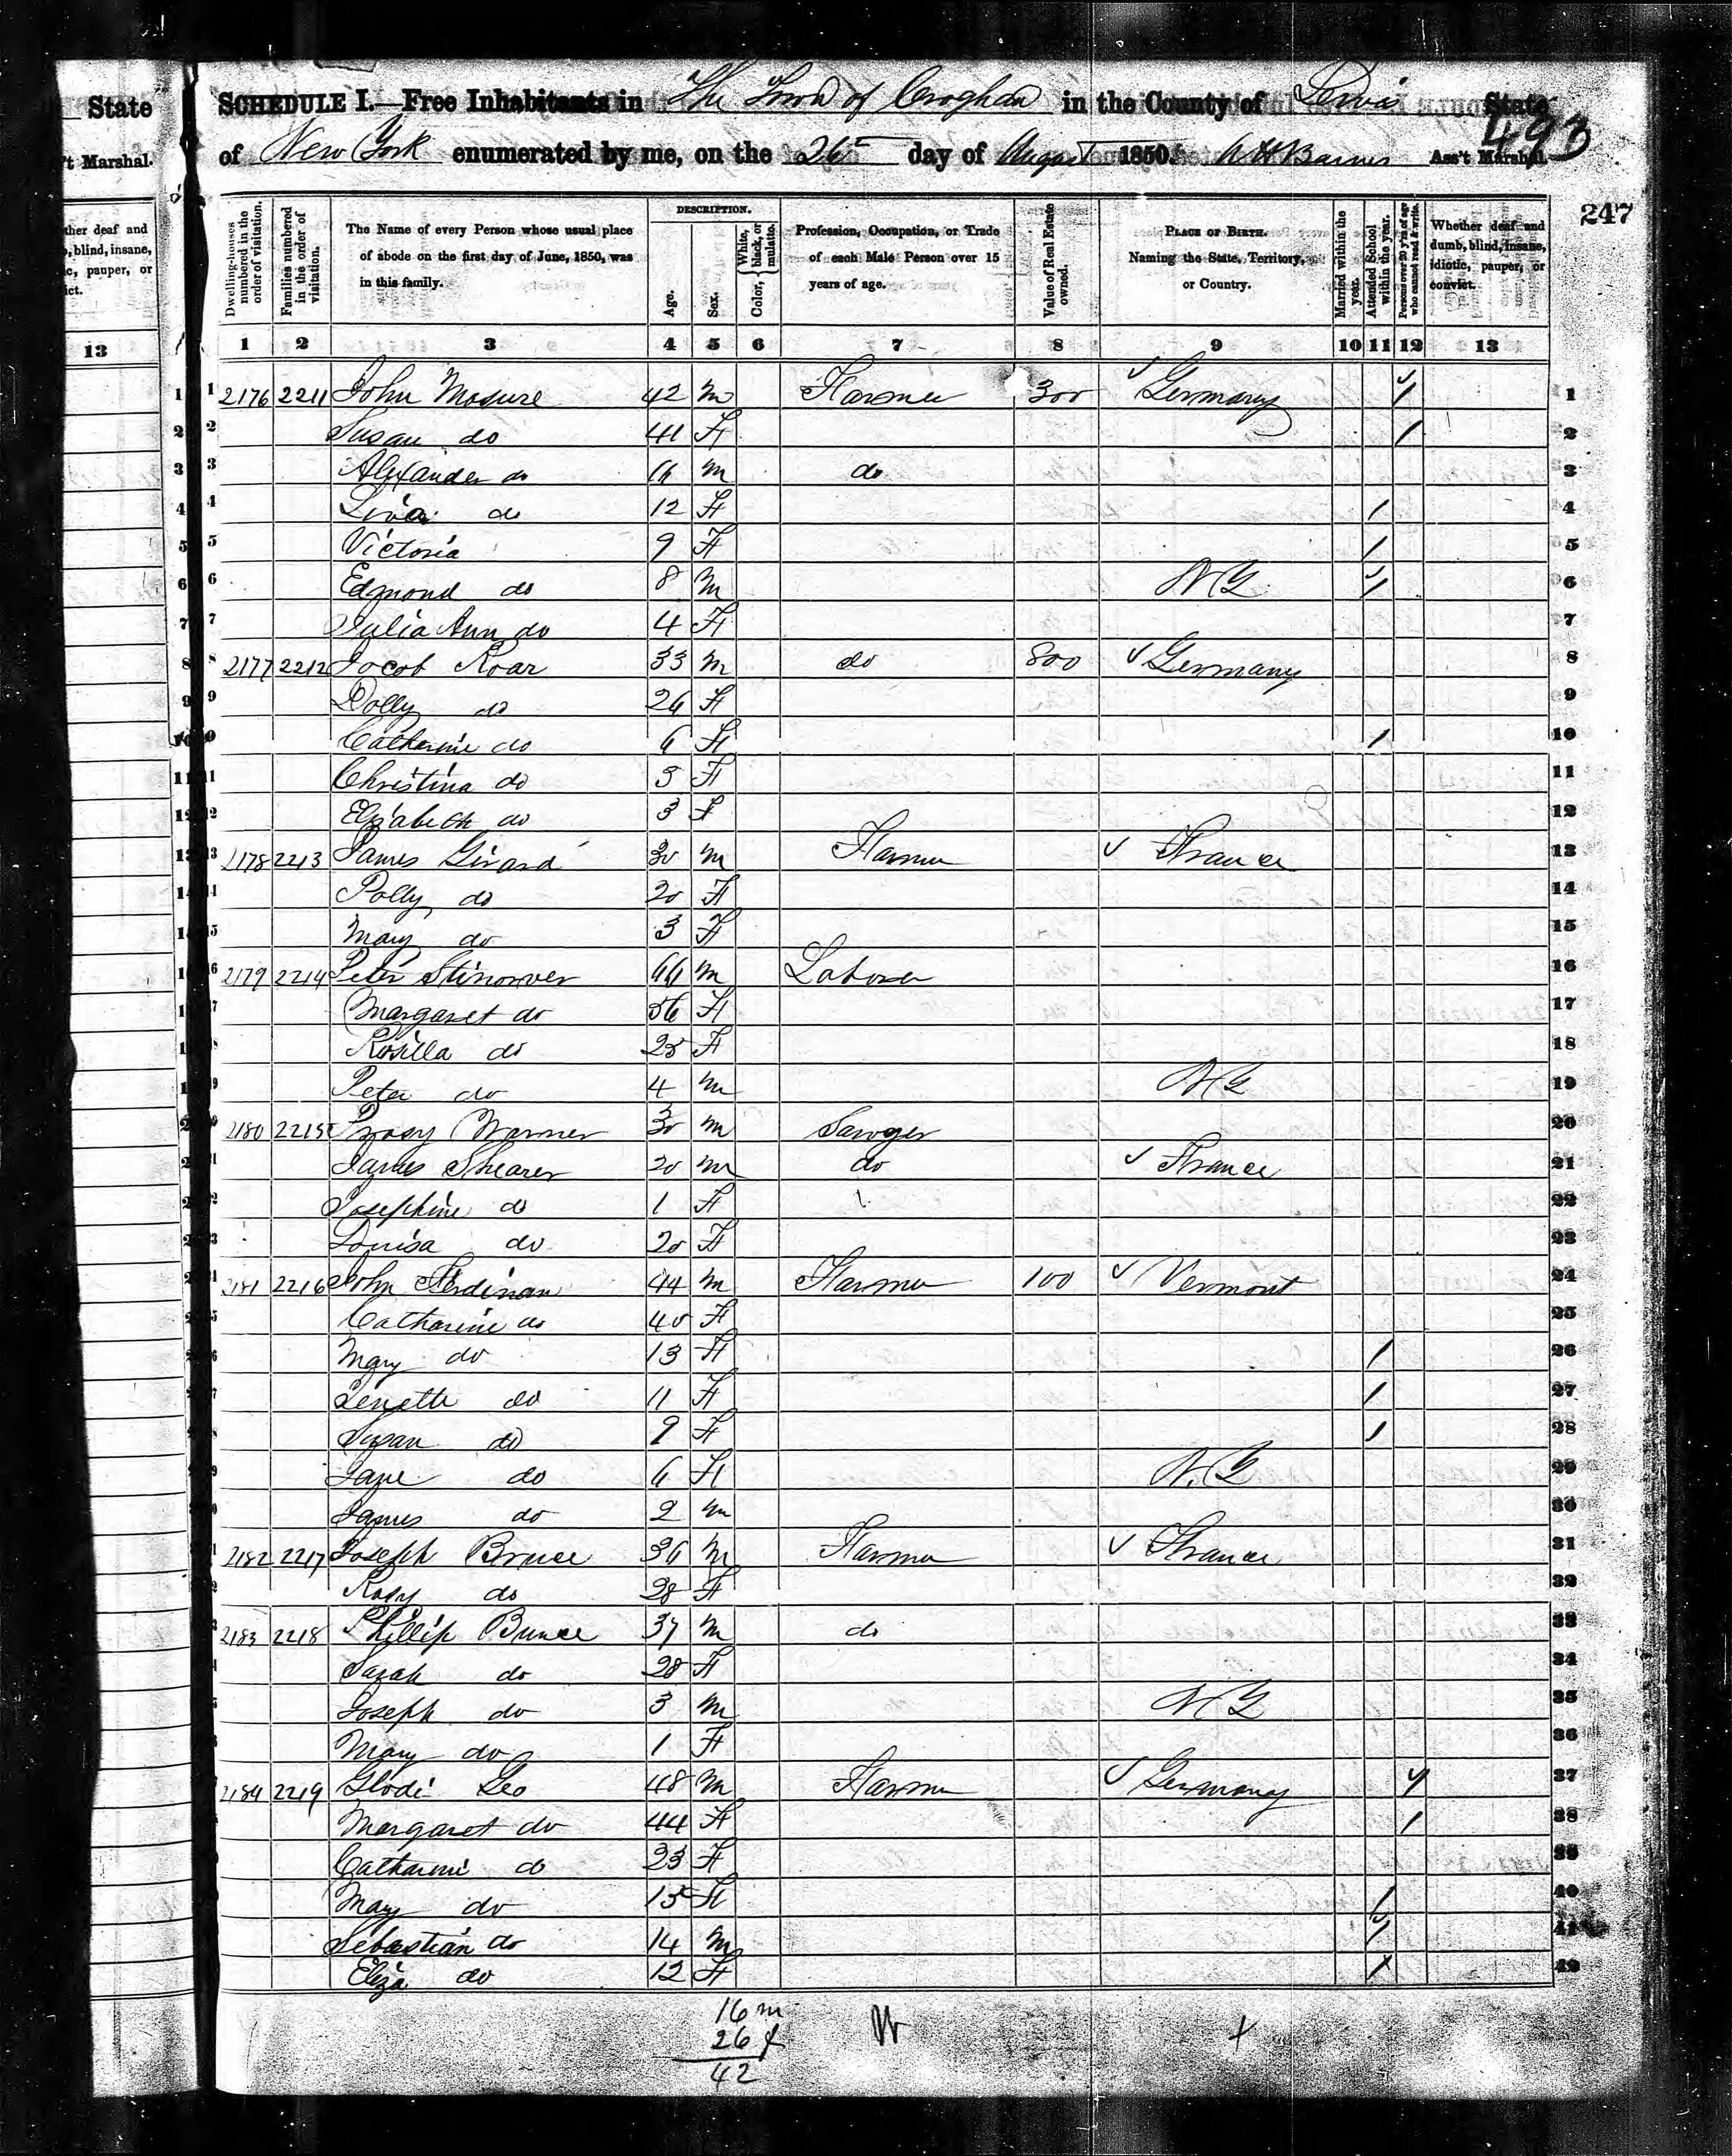 State
't Marshal.
ther deaf and
, blind, insane,
c, pauper, or
ict.
13
SCHEDULE I.—Free Inhabitants in The Town of Croghan in the County of Lewis State
493
of New York enumerated by me, on the 26 day of August 1850. A H Barnes Ass't Marshal.
247
Dwelling-houses numbered in the order of visitation.
Families numbered in the order of visitation.
The Name of every Person whose usual place of abode on the first day of June, 1850, was in this family.
DESCRIPTION.
Age.
Sex.
Color, White, black, or mulatto.
Profession, Occupation, or Trade of each Male Person over 15 years of age.
Value of Real Estate owned.
PLACE OF BIRTH. Naming the State, Territory, or Country.
Married within the year.
Attended School within the year.
Persons over 20 y'rs of age who cannot read & write.
Whether deaf and dumb, blind, insane, idiotic, pauper, or convict.
1 2 3 4 5 6 7 8 9 10 11 12 13
1 2176 2211 John Mosure 42 m Farmer 300 Germany / 1
2 Susan do 41 F / 2
3 Alexander do m do 3
4 do 12 F / 4
5 Victoria 9 F / 5
6 Edmond do 8 m N Y / 6
7 Julia Ann do 4 F 7
8 2177 2212 Jacob Roar 33 m do 800 Germany 8
9 Dolly do 26 F 9
10 Catharine do 6 F / 10
11 Christina do 3 F 11
12 Elizabeth do 3 F 12
13 2178 2213 James Girard 30 m Farmer France 13
14 Polly do 20 F 14
15 Mary do 3 F 15
16 2179 2214 Peter m Laborer 16
17 Margaret do 56 F 17
18 Rosilla do 25 F 18
19 Peter do 4 m N Y 19
20 2180 2215 Warner 30 m Sawyer 20
21 James Shearer 20 m do France 21
22 Josephine do 1 F 22
23 Louisa do 20 F 23
24 2181 2216 John Ferdinan 44 m Farmer 100 Vermont 24
25 Catharine do 40 F 25
26 Mary do 13 F / 26
27 do 11 F / 27
28 Susan do 9 F / 28
29 Jane do 6 F N.Y 29
30 James do 2 m 30
31 2182 2217 Joseph Bruce 36 m Farmer France 31
32 Rosy do 28 F 32
33 2183 2218 Phillip Bunce 37 m do 33
34 Sarah do 28 F 34
35 Joseph do 3 m N Y 35
36 Mary do 1 F 36
37 2184 2219 Glodi Leo 48 m Farmer Germany / 37
38 Margaret do 44 F / 38
39 Catharine do 23 F 39
40 Mary do 15 F / 40
41 Sebastian do 14 m / 41
42 Eliza do 12 F / 42
16 m
26 f
42